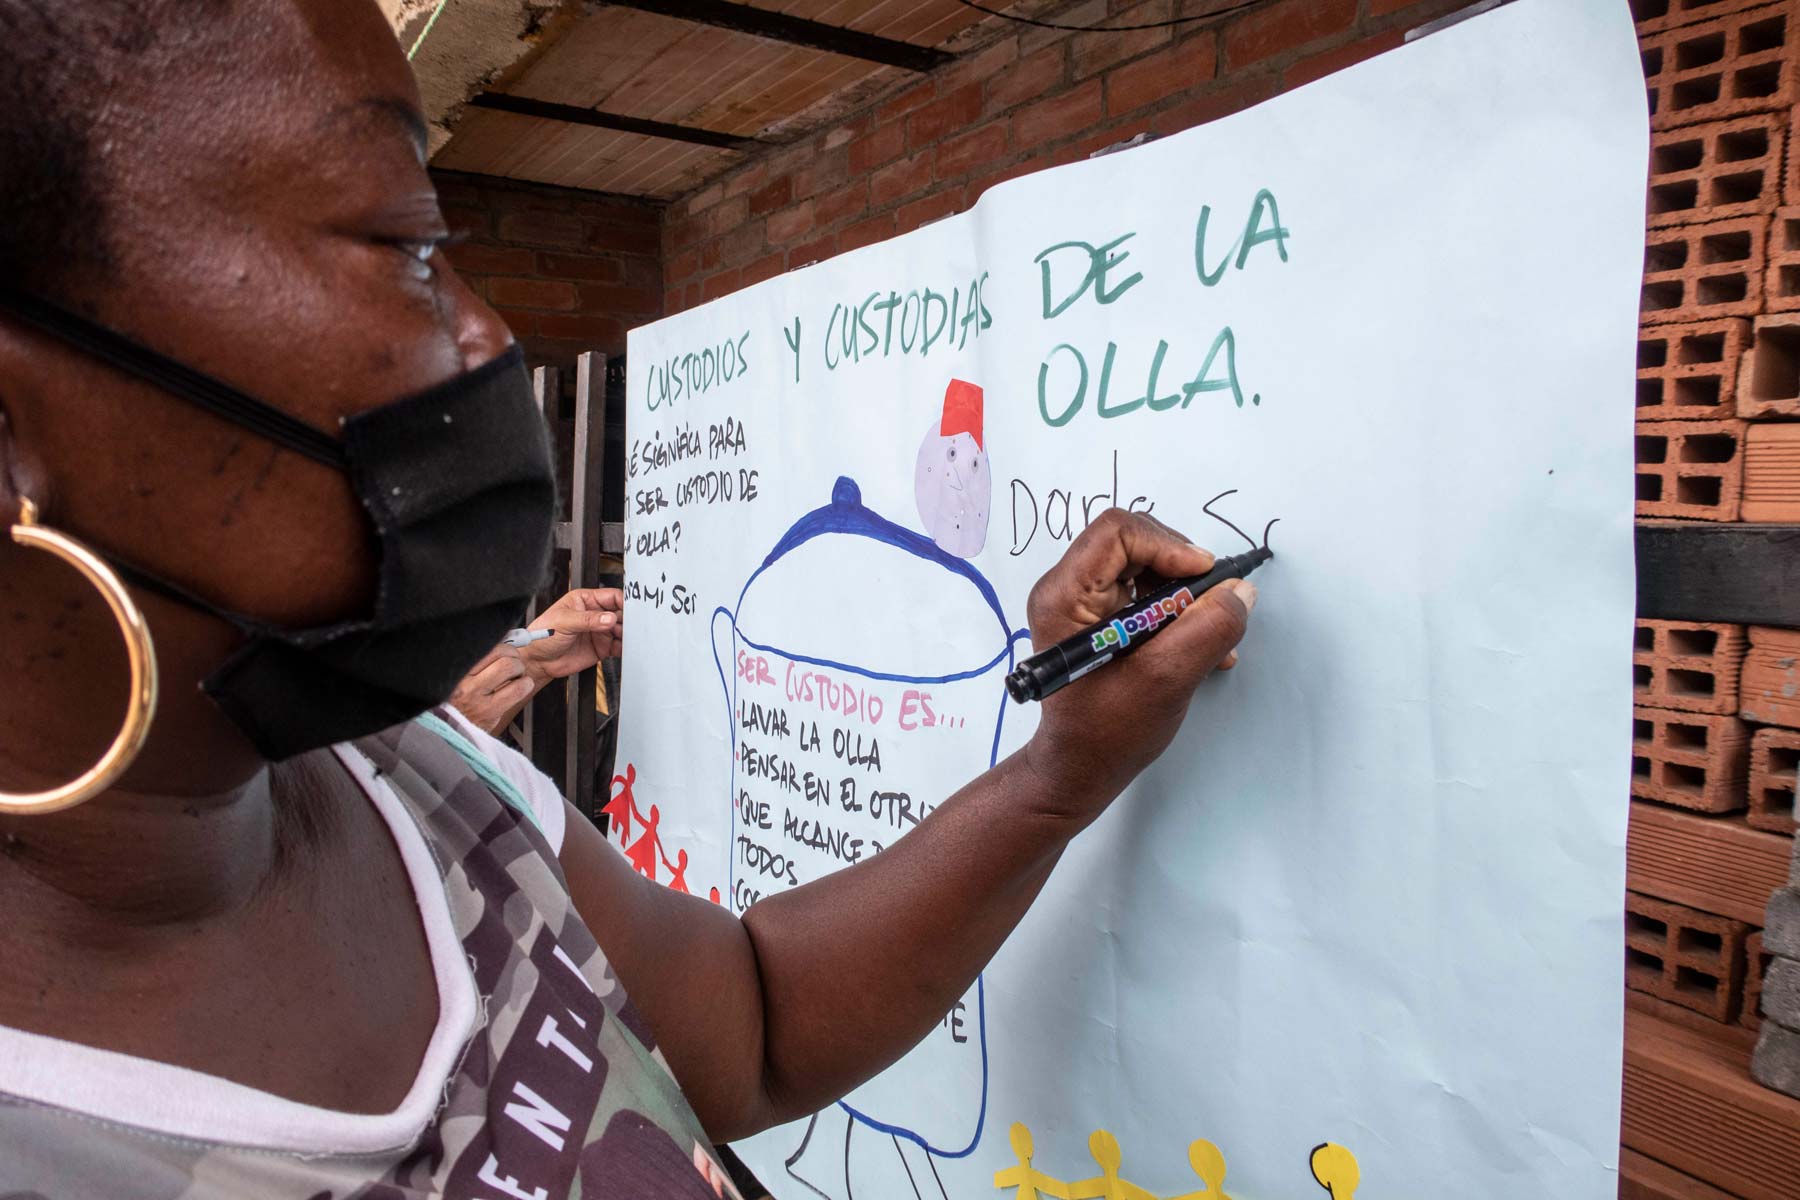 CUSTODIOS Y CUSTODIAS DE LA
OLLA.
SIGNIFICA PARA
SER CUSTODIO DE
OLLA?
mi Ser
SER CUSTODIO ES...
• LAVAR LA OLLA
• PENSAR EN EL
• QUE ALCANCE
TODOS
Doricolor